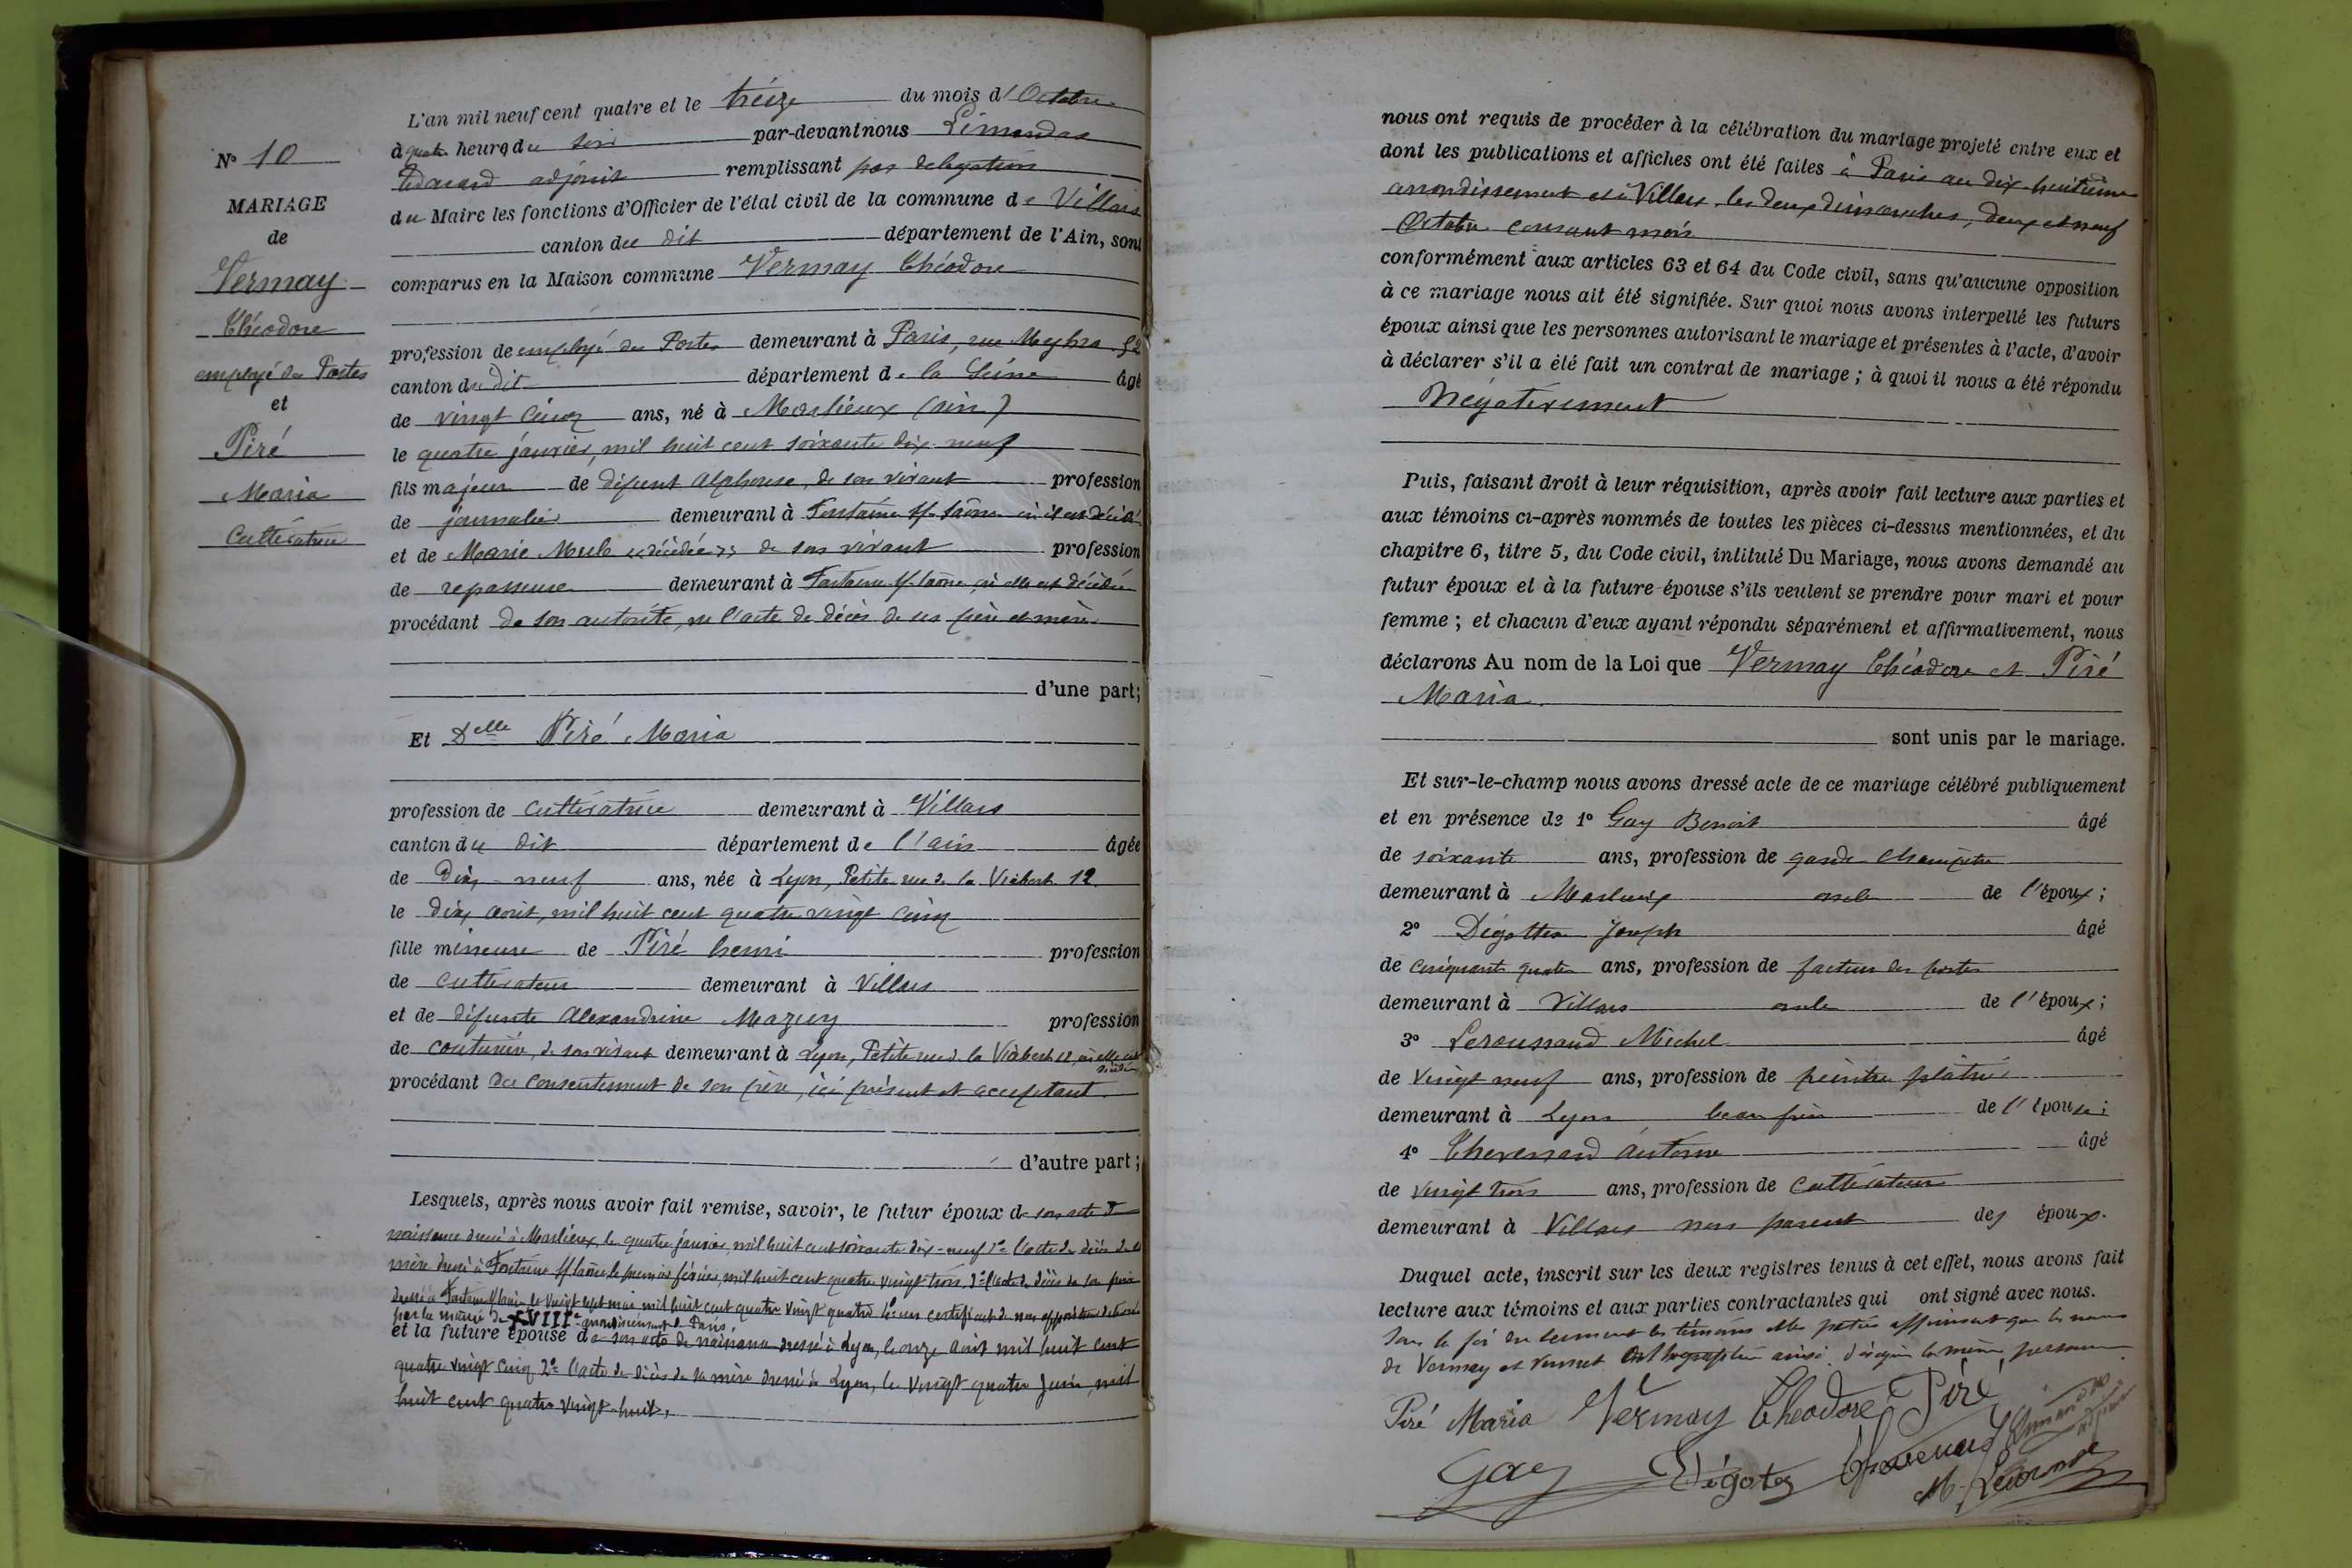 N° 10
MARIAGE
de
Vermay
Théodore
employé des Postes
et
Piré
Maria
Cultivatrice
L'an mil neuf cent quatre et le treize du mois d'Octobre
à quatre heures du soir par-devant nous Limandas
Edouard adjoint remplissant par délégation
du Maire les fonctions d'Officier de l'état civil de la commune de Villars
canton du dit département de l'Ain, sont
comparus en la Maison commune Vermay Théodore
profession de employé des Postes demeurant à Paris, rue 52
canton du dit département de la Seine âgé
de vingt cinq ans, né à Marlieux (Ain)
le quatre janvier, mil huit cent soixante dix neuf
fils majeur de défunt Alphonse, de son vivant profession
de journalier demeurant à Fontaine s/ Saône où il est décédé
et de Marie décédée de son vivant profession
de repasseuse demeurant à Fontaine s/ Saône, où elle est décédée
procédant de son autorité, vu l'acte de décès de ses père et mère
d'une part;
Et Delle Piré Maria
profession de cultivatrice demeurant à Villars
canton du dit département de l'Ain âgée
de Dix-neuf ans, née à Lyon, Petite rue de la Viabert 12
le dix août, mil huit cent quatre vingt cinq
fille mineure de Piré henri profession
de cultivateur demeurant à Villars
et de défunte Alexandrine Mazuy profession
de couturière, de son vivant demeurant à Lyon, Petite rue de la Viabert 12, où elle est
décédée
procédant du consentement de son père, ici présent et acceptant
d'autre part;
Lesquels, après nous avoir fait remise, savoir, le futur époux de son acte de
naissance dressé à Marlieux, le quatre janvier, mil huit cent soixante dix-neuf l'acte de décès de sa
mère dressé à Fontaine s/ Saône le premier février, mil huit cent quatre vingt trois, 3° l'acte de décès de son père
dressé à Fontaine s/ Saône le vingt sept mai mil huit cent quatre vingt quatre un certificat de non opposition délivré
par la mairie du XVIIIe arrondissement de Paris,
et la future épouse de son acte de naissance dressé à Lyon, le onze août mil huit cent
quatre vingt cinq 2° l'acte de décès de sa mère dressé à Lyon, le vingt quatre Juin, mil
huit cent quatre vingt-huit,
nous ont requis de procéder à la célébration du mariage projeté entre eux et
dont les publications et affiches ont été faites à Paris au dix-huitième
arrondissement et à Villars, les deux dimanches, deux et neuf
Octobre courant mois
conformément aux articles 63 et 64 du Code civil, sans qu'aucune opposition
à ce mariage nous ait été signifiée. Sur quoi nous avons interpellé les futurs
époux ainsi que les personnes autorisant le mariage et présentes à l'acte, d'avoir
à déclarer s'il a été fait un contrat de mariage; à quoi il nous a été répondu
Négativement
Puis, faisant droit à leur réquisition, après avoir fait lecture aux parties et
aux témoins ci-après nommés de toutes les pièces ci-dessus mentionnées, et du
chapitre 6, titre 5, du Code civil, intitulé Du Mariage, nous avons demandé au
futur époux et à la future épouse s'ils veulent se prendre pour mari et pour
femme; et chacun d'eux ayant répondu séparément et affirmativement, nous
déclarons Au nom de la Loi que Vermay Théodore et Piré
Maria
sont unis par le mariage.
Et sur-le-champ nous avons dressé acte de ce mariage célébré publiquement
et en présence de 1° Gay Benoit âgé
de soixante ans, profession de garde Champêtre
demeurant à Marlieux oncle de l'époux;
2° Dégottex Joseph âgé
de cinquante quatre ans, profession de facteur des postes
demeurant à Villars oncle de l'époux;
3° Leroussaud Michel âgé
de vingt neuf ans, profession de peintre plâtrier
demeurant à Lyon beau frère de l'épouse;
4° Thevenard Antoine âgé
de vingt trois ans, profession de cultivateur
demeurant à Villars non parent des époux.
Duquel acte, inscrit sur les deux registres tenus à cet effet, nous avons fait
lecture aux témoins et aux parties contractantes qui ont signé avec nous.
Sous la foi du serment les témoins et les parties affirment que les noms
de Vermay et Orthographiés ainsi la même personne
Piré Maria Vermay Théodore Piré
Limandas
adjoint
Gay Dégotex Thevenard